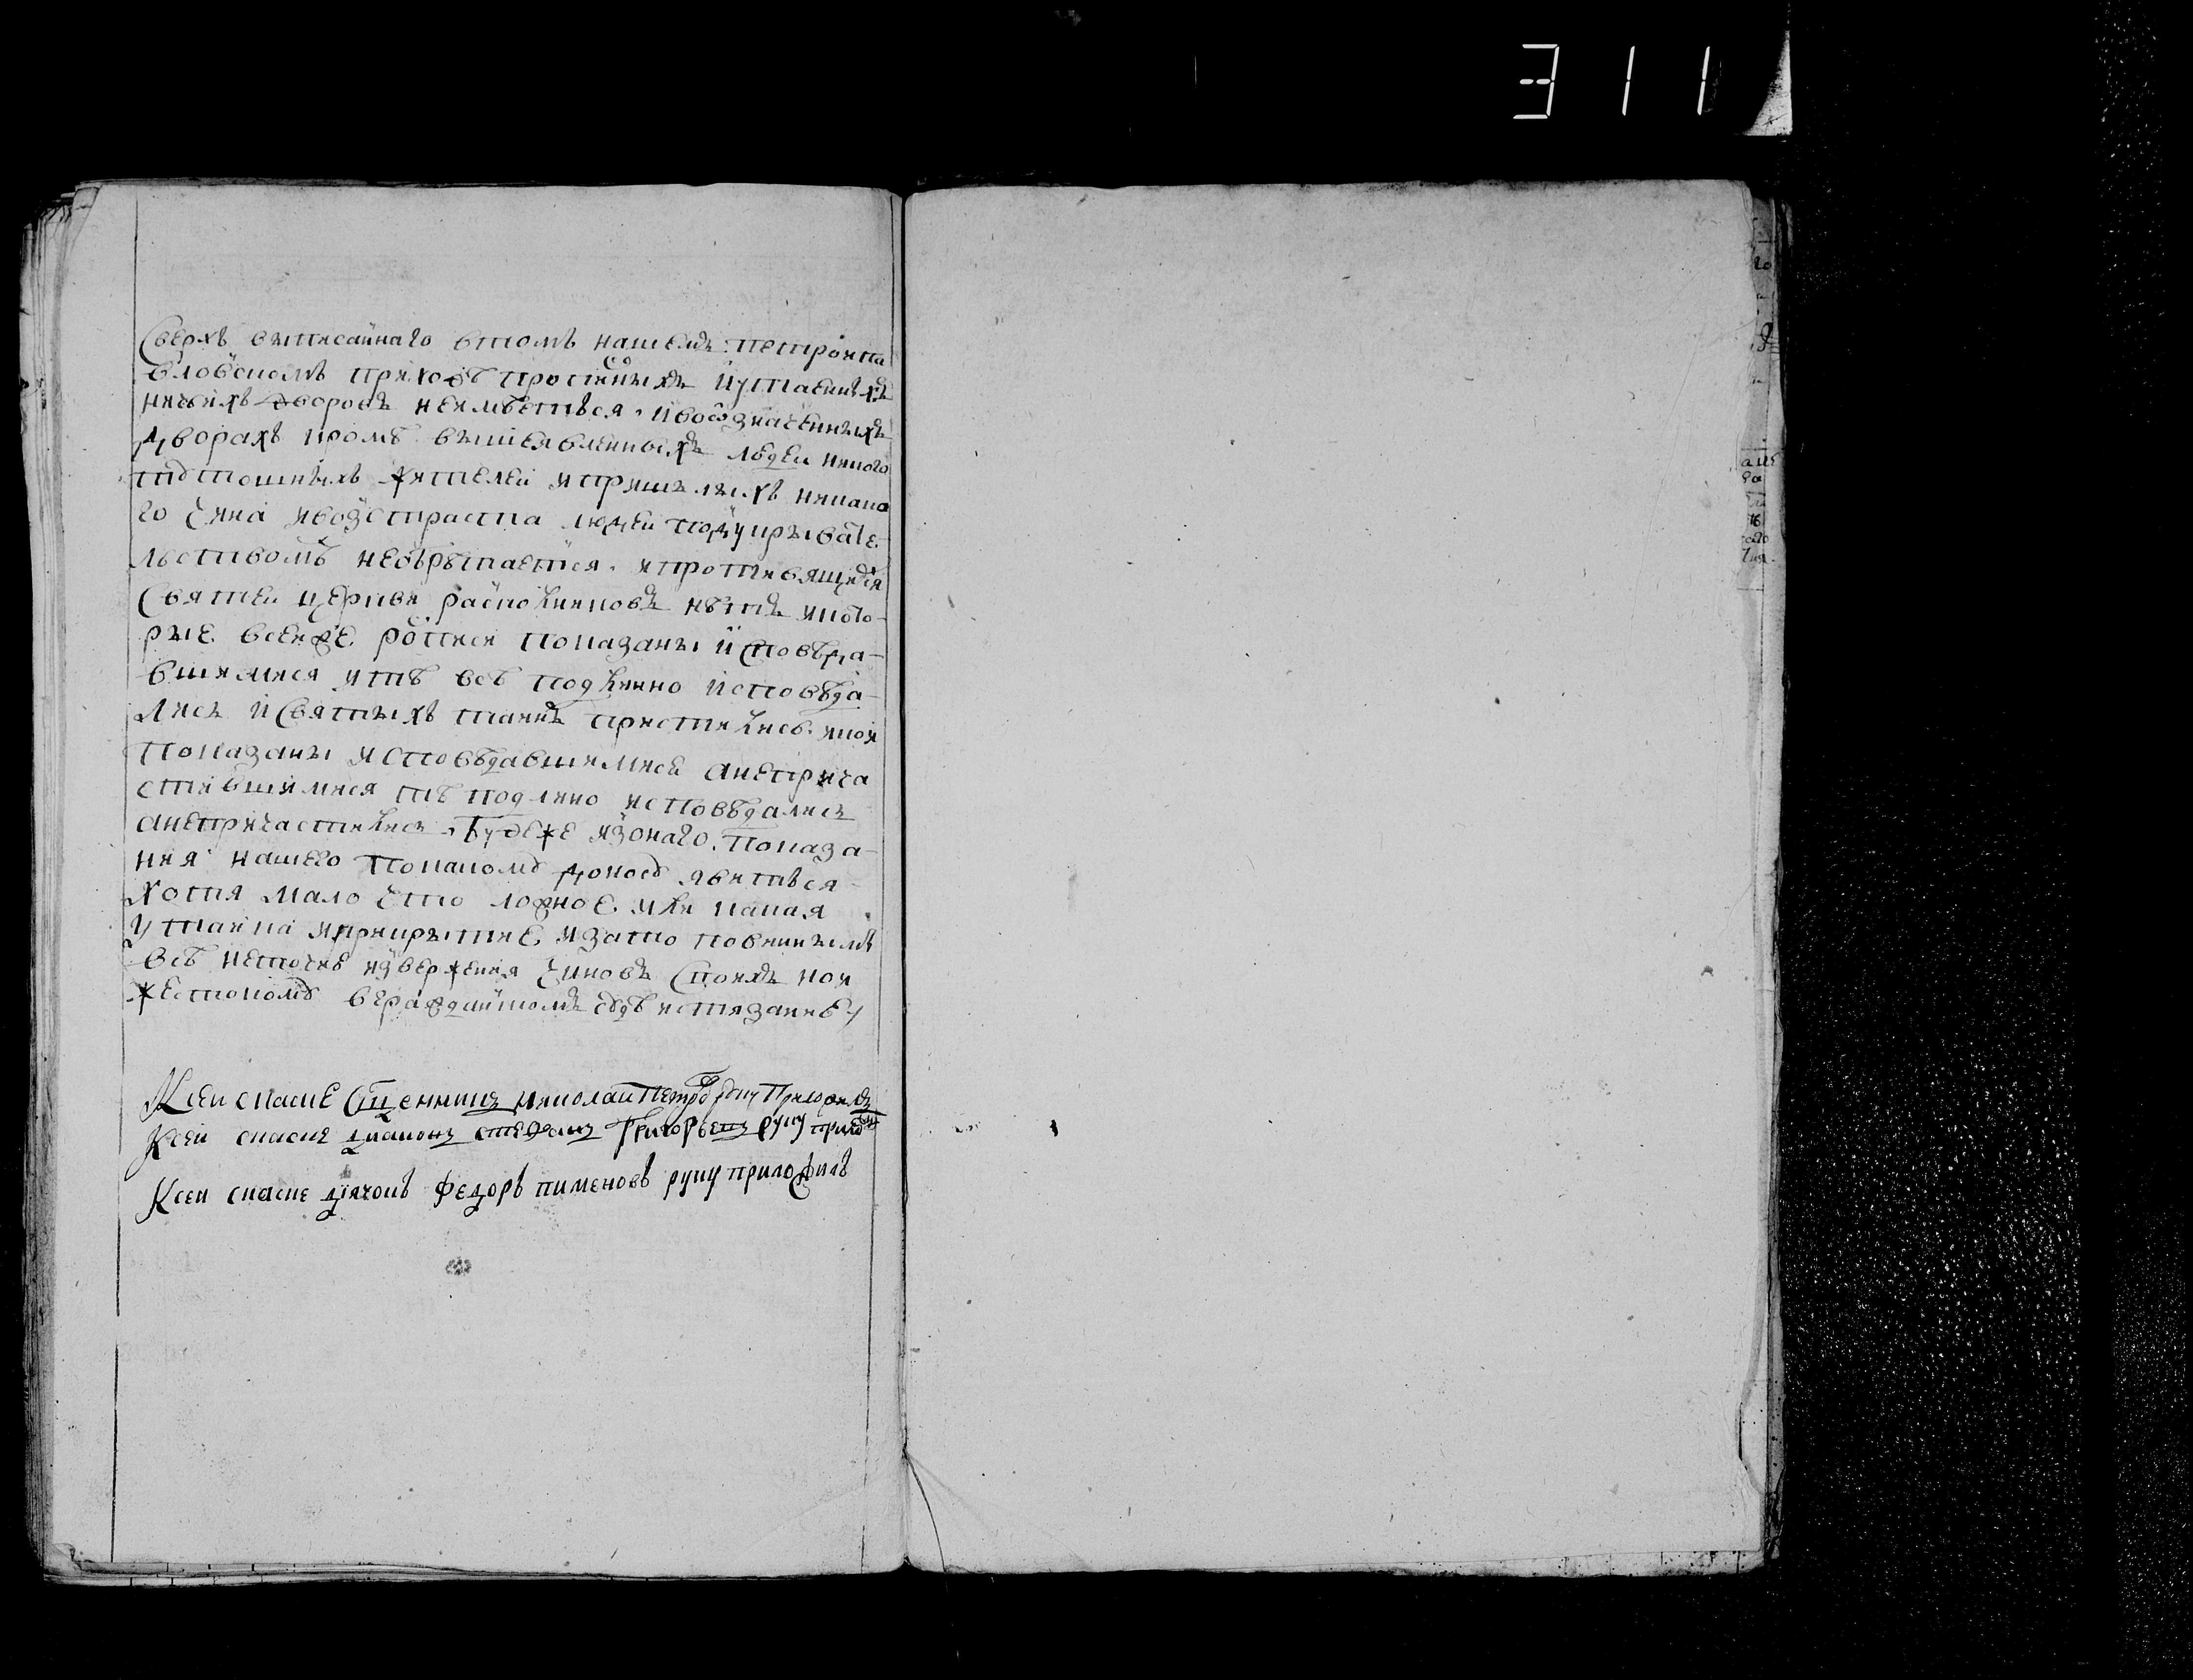 311
Сверхъ выписаннаго втомъ нашемъ петропа
вловскомъ приходѣ прописныхъ иутаенныхъ
ничьихъ дворовъ неимѣетъся. ивоѡзначенныхъ
дворахъ кромѣ вышеявленныхъ людеи никого
тутошныхъ жителеи ипришлыхъ никако
го чина ивозстраста людеи подукрывате
льствомъ необрѣтается. ипротивящихся
святеи церкви расколниковъ нѣтъ икото
рые всеиже росписи показаны исповѣда
вшимися итѣ всѣ подлинно исповѣда
лись исвятыхъ таинъ пристились. икои
показаны исповѣдавшимися анеприча
стившимися тѣ подлино исповѣдались
анепричастились. Будеже изонаго показа
ния нашего покакому доносу явитъся
хотя мало что ложное или какая
утаика иприкрытие изато повинными
всѣ кетоене извержения чиновъ своихъ ион
жестокому вгражданскомъ судѣ истязание
Ксеи скаске Священникъ николаи Петровъ руку Приложилъ
Ксеи скаске диаконъ стефанъ Григорьевъ руку приложилъ
Ксеи скаске дїячокъ федоръ пименовъ руку приложилъ